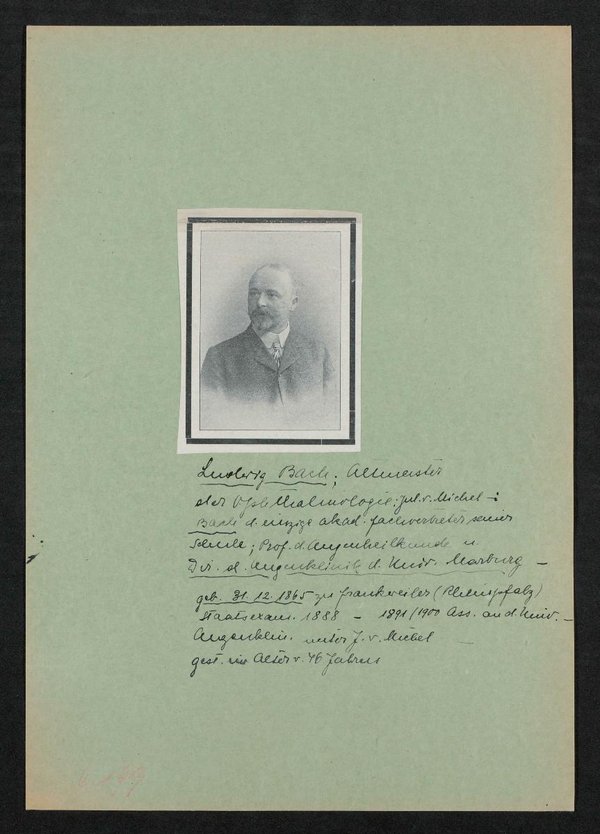 Ludwig Bach; Altmeister
der Ophthalmologie: Jul. v. Michel -:
Bach d. einzige akad. Fachvertreter seiner
Schule; Prof. d. Augenheilkunde u
Dir. d. Augenklinik d. Univ. Marburg -
geb. 31. 12. 1865 zu Frankweiler (Rheinpfalz)
Staatsexam. 1888 - 1891/1900 Ass. an d. Univ. -
Augenklin. unter J. v. Michel -
gest. im Alter v. 46 Jahren